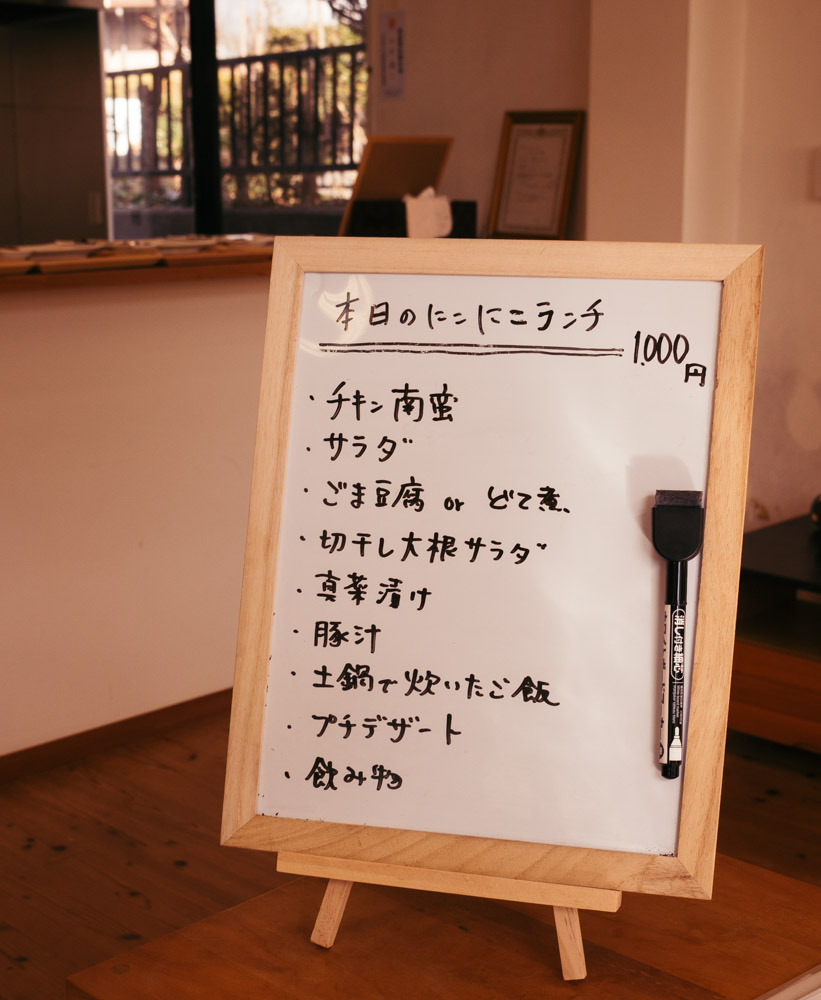 本日のにこにこランチ
1,000円
・チキン南蛮
・サラダ
・ごま豆腐 or どて煮
・切干し大根サラダ
・真菜漬け
・豚汁
・土鍋で炊いたご飯
・プチデザート
・飲み物
消し付き細芯